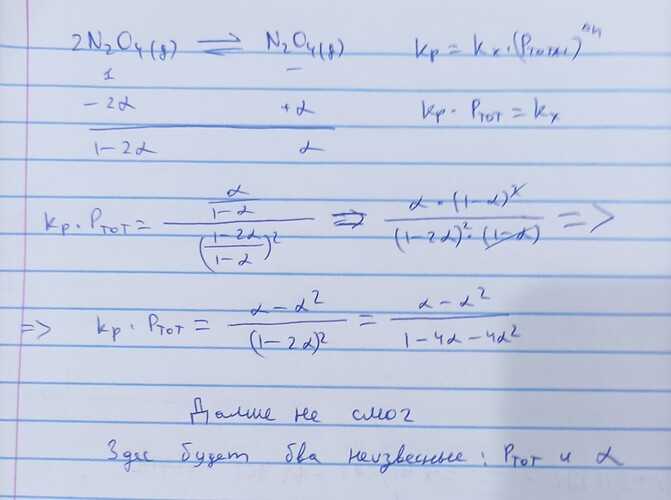 2N₂O₄(g) ⇌ N₂O₄(g) Kp = Kx·(Pтотал)^Δn
1 –
– 2α +α Kp · Pтот = Kx
1–2α α
Kp · Pтот = (α/(1–α)) / ((1–2α)/(1–α))² => α · (1–α)² / (1–2α)² · (1–α) =>
=> Kp · Pтот = (α – α²) / (1–2α)² = (α – α²) / (1 – 4α – 4α²)
Далше не смог
Здес будет два неизвесные: Pтот и α